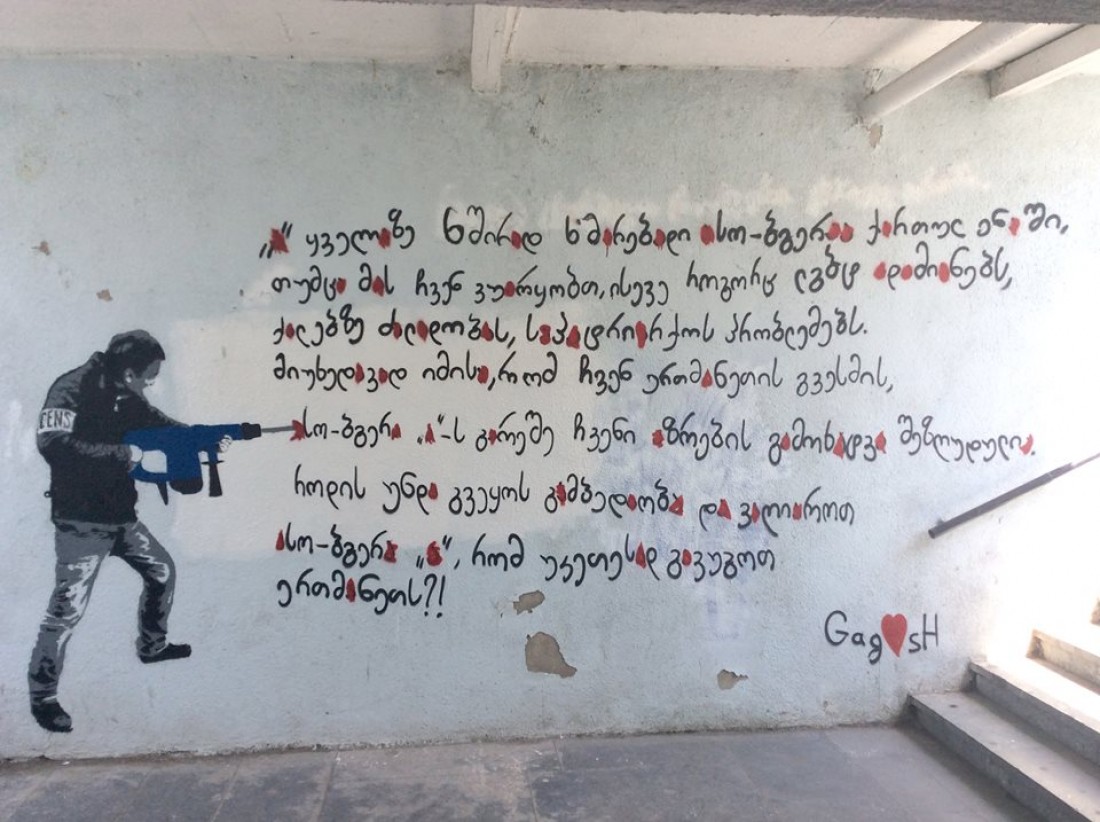 „ა“ ყველაზე ხშირად ხმარებადი ასო-ბგერაა ქართულ ენაში,
თუმცა მას ჩვენ ვუარყობთ, ისევე როგორც ლგბტ ადამიანებს,
ქალებზე ძალადობას, საპატრიარქოს პრობლემებს.
მიუხედავად იმისა, რომ ჩვენ ერთმანეთის გვესმის,
CENS
ასო-ბგერა „ა“-ს გარეშე ჩვენი აზრების გამოხატვა შეზღუდულია.
როდის უნდა გვეყოს გამბედაობა და ვაღიაროთ
ასო-ბგერა „ა“, რომ უკეთესად გავუგოთ
ერთმანეთს?!
Gag♥sH